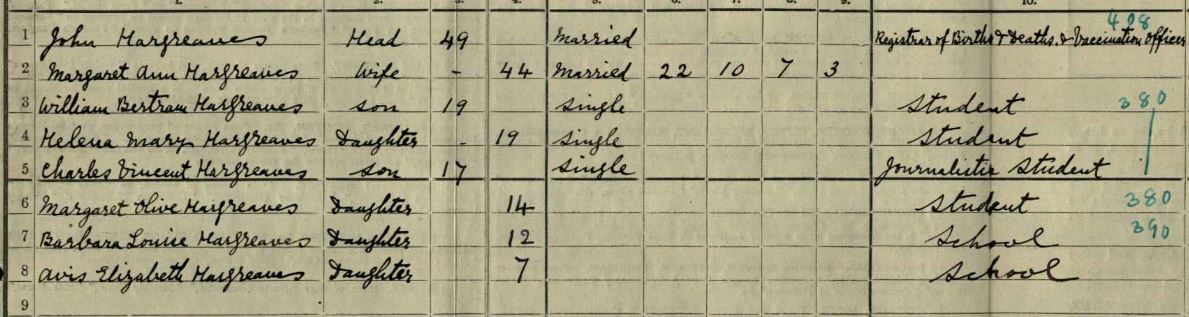 1. 2. 3. 4. 5. 6. 7. 8. 9. 10.
408
1 John Hargreaves Head 49 Married Registrar of Births & Deaths & Vaccination Officer
2 Margaret Ann Hargreaves Wife - 44 Married 22 10 7 3
3 William Bertram Hargreaves Son 19 Single Student 380
4 Helena Mary Hargreaves Daughter - 19 Single Student
5 Charles Vincent Hargreaves Son 17 Single Journalistic Student
6 Margaret Olive Hargreaves Daughter 14 Student 380
7 Barbara Louise Hargreaves Daughter 12 School 390
8 Avis Elizabeth Hargreaves Daughter 7 School
9